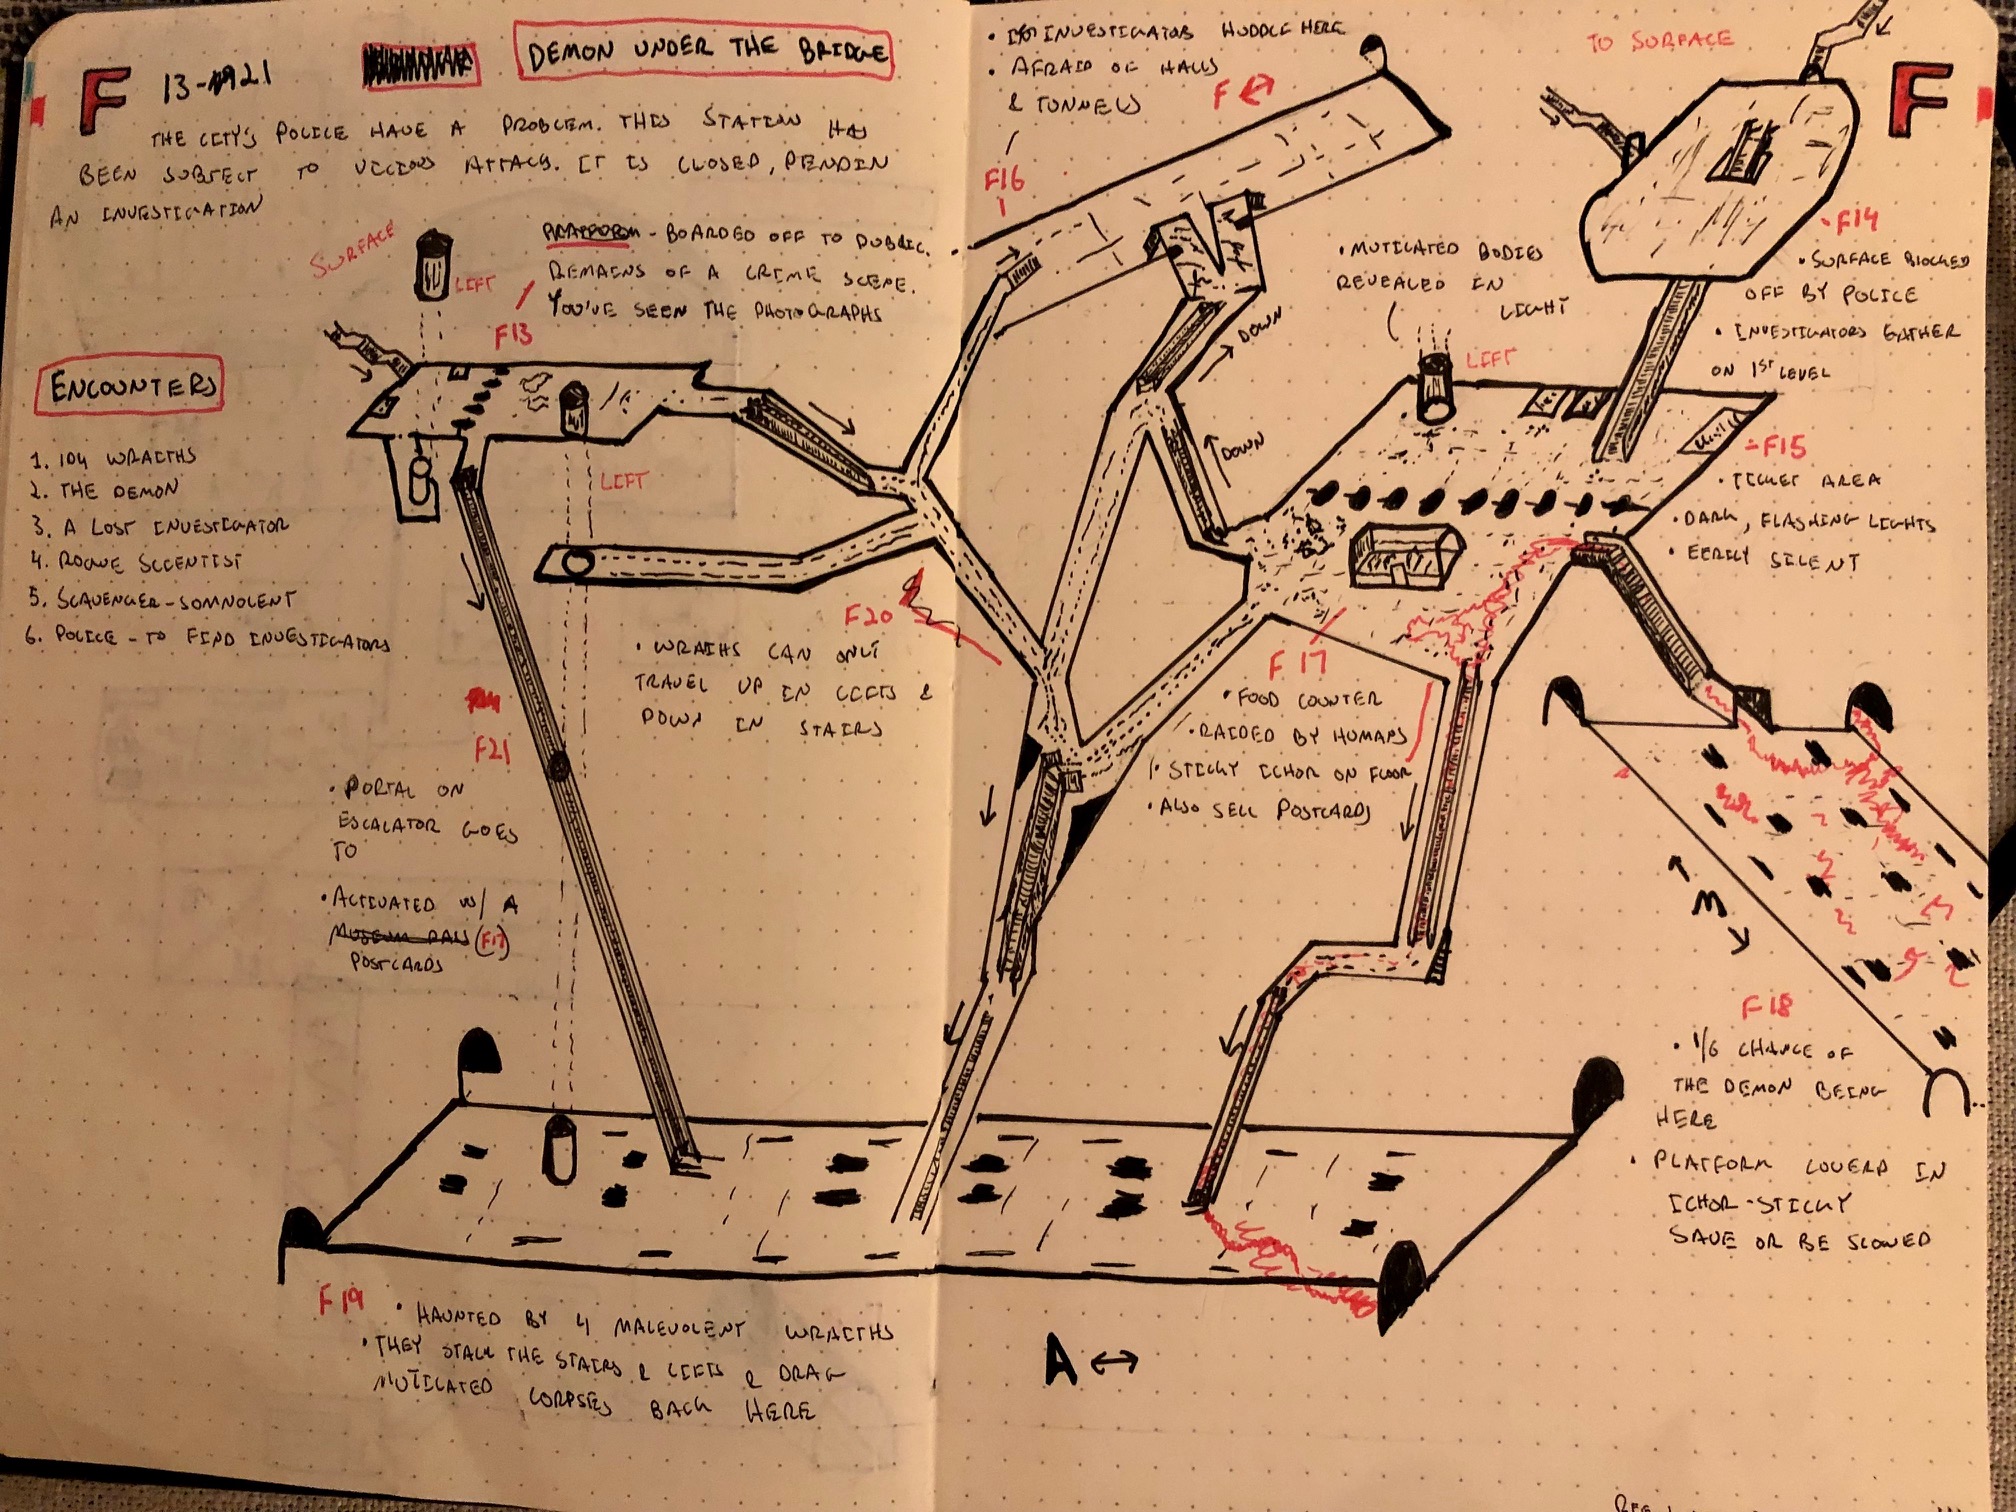 F 13-21
DEMON UNDER THE BRIDGE
THE CITY'S POLICE HAVE A PROBLEM. THIS STATION HAS
BEEN SUBJECT TO VICIOUS ATTACKS. IT IS CLOSED, PENDIN
AN INVESTIGATION
SURFACE
LIFT
F13
PLATFORM - BOARDED OFF TO PUBLIC.
REMAINS OF A CRIME SCENE.
YOU'VE SEEN THE PHOTOGRAPHS
ENCOUNTERS
1. 1D4 WRAITHS
2. THE DEMON
3. A LOST INVESTIGATOR
4. ROGUE SCIENTIST
5. SCAVENGER - SOMNOLENT
6. POLICE - TO FIND INVESTIGATORS
LIFT
F20
• WRAITHS CAN ONLY
TRAVEL UP IN LIFTS &
DOWN IN STAIRS
F21
• PORTAL ON
ESCALATOR GOES
TO
• ACTIVATED W/ A
MUSEUM PASS (F17)
POSTCARDS
F19
• HAUNTED BY 4 MALEVOLENT WRAITHS
• THEY STALK THE STAIRS & LIFTS & DRAG
MUTILATED CORPSES BACK HERE
• INVESTIGATORS HUDDLE HERE
• AFRAID OF HALLS
& TUNNELS
F16
F ↔
TO SURFACE
F
F14
• SURFACE BLOCKED
OFF BY POLICE
• INVESTIGATORS GATHER
ON 1ST LEVEL
• MUTILATED BODIES
REVEALED IN
LIGHT
LIFT
DOWN
DOWN
F15
• TICKET AREA
• DARK, FLASHING LIGHTS
• EERILY SILENT
F17
• FOOD COUNTER
• RAIDED BY HUMANS
• STICKY ICHOR ON FLOOR
• ALSO SELL POSTCARDS
M
F18
• 1/6 CHANCE OF
THE DEMON BEING
HERE
• PLATFORM COVERD IN
ICHOR - STICKY
SAVE OR BE SLOWED
A ↔